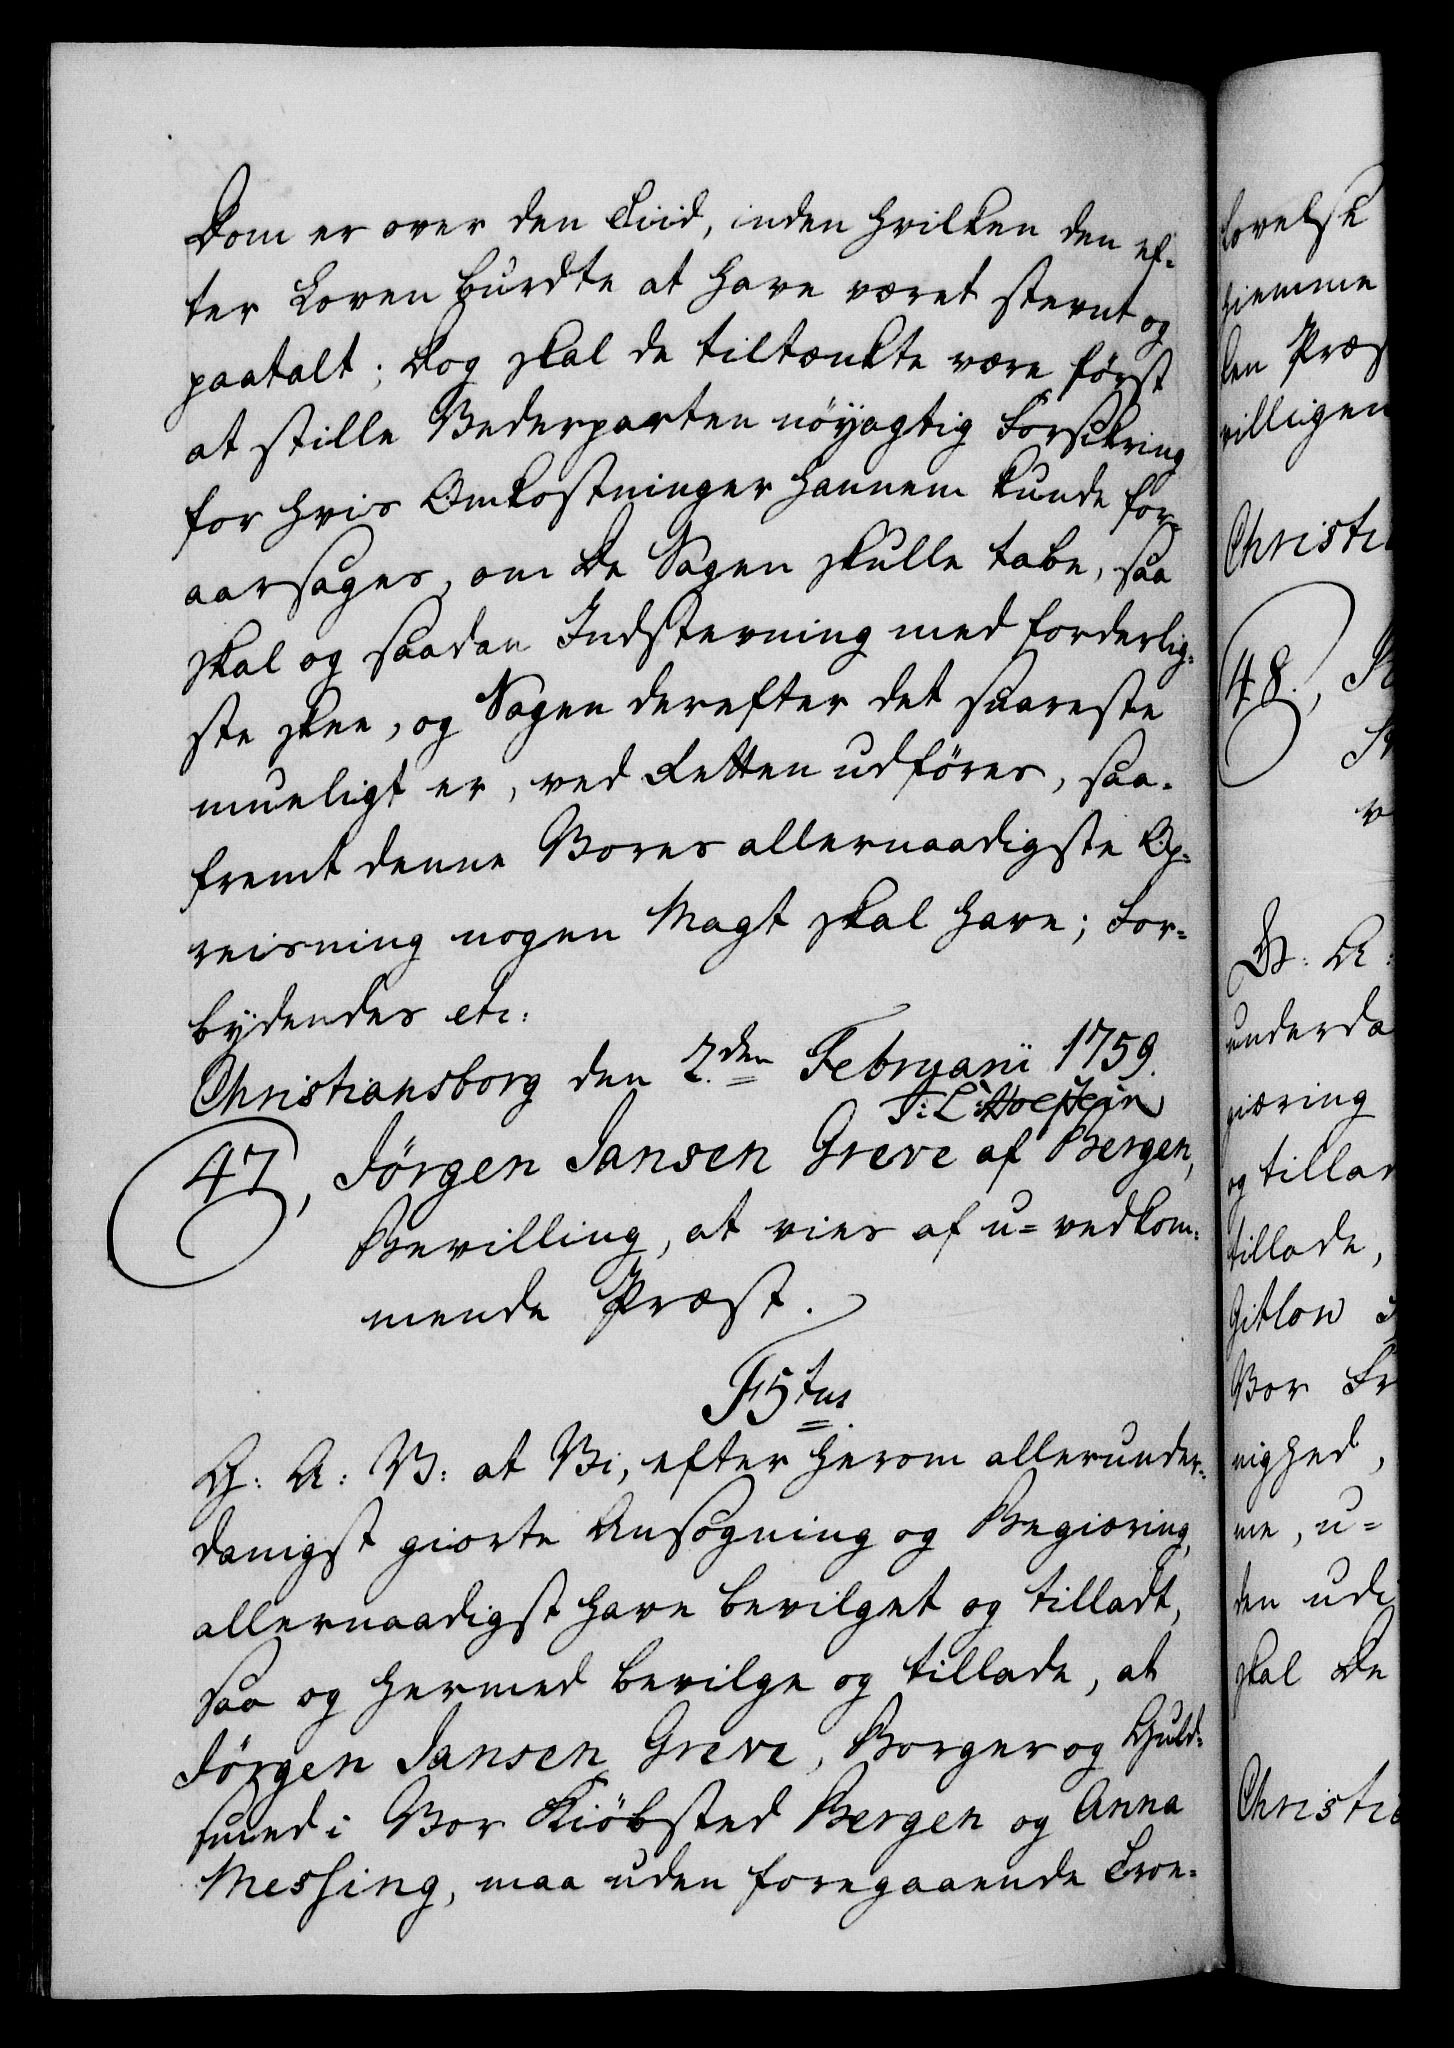 Dom er over den Tiid, inden hvilken den ef-
ter Loven burdte at have været stevnt og
paatalt; Dog skal de tiltænkte være først
at stille Vederparten nöyagtig Forsikring
for hvis Omkostninger hannem kunde for-
aarsages, om De Sagen skulle tabe, saa
skal og saadan Indstevning med forderlig-
ste skee, og Sagen derefter det snareste
mueligt er, ved Retten udföres, saa-
fremt denne Vores allernaadigste Op-
reisning nogen Magt skal have; For-
bydendes etc:
Christiansborg den 2.den Februarii 1759.
J: L: Holstein
47, Jörgen Jansen Greve af Bergen,
Bevilling, at vies af u-vedkom-
mende Præst.
F5tus.
G: A: V: at Vi, efter herom allerunder-
danigst giorte Ansögning og Begiæring,
allernaadigst have bevilget og tilladt,
saa og hermed bevilge og tillade, at
Jörgen Jansen Greve, Borger og Guld-
smed i Vor Kiöbsted Bergen og Anna
Messing, maa uden foregaaende Troe-
lovelse
hiemme
ken Præs
villigen
Christi
48.,
D: A:
underda
giæring
og tillad
tillade,
Gitlow
Vor Fr
nighed,
me, u-
den udi
skal De
Christi